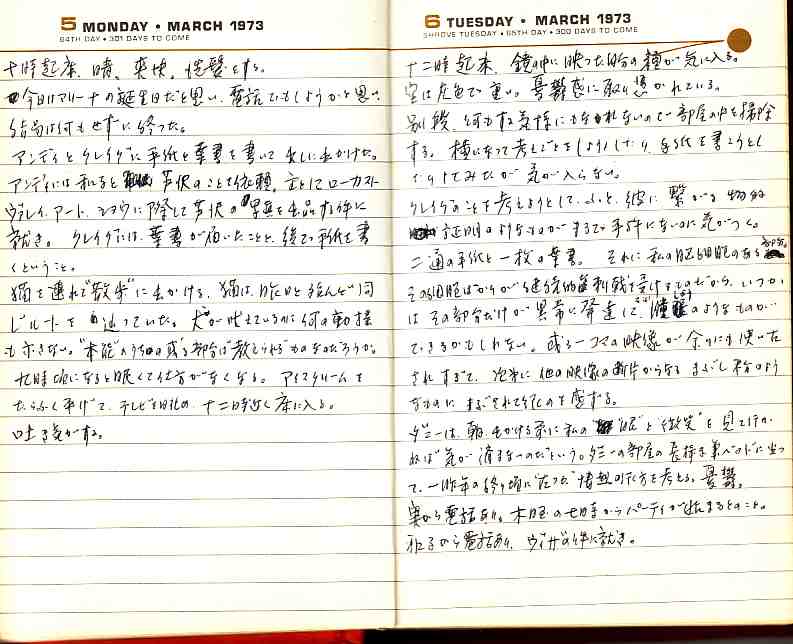 5 MONDAY • MARCH 1973
64TH DAY • 301 DAYS TO COME
十時起床、晴、爽快、洗髪をする。
今日はマリーナの誕生日だと思い、電話でもしようかと思い
結局は何もせずに終った。
アンディとクレイグに手紙と葉書を書いて出しに出かけた。
アンディには和子と芦沢のことを依頼、主としてローカスト
ヴァレイ・アート・ショウに際して芦沢の写真を出品する件に
就き。クレイグには、葉書が届いたことと、後で手紙を書
くということ。
猫を連れて“散歩”に出かける。猫は昨日と殆んど同
じルートを辿っていた。犬が吠えているのに何の動揺
も示さない。“本能”のうちの或る部分は教えられるものなのだろうか。
九時頃になると眠くて仕方がなくなる。アイスクリームを
たらふく平げて、テレビを見、十二時近く床に入る。
吐き気がする。
6 TUESDAY • MARCH 1973
SHROVE TUESDAY • 65TH DAY • 300 DAYS TO COME
十二時起床、鏡の中に映った自分の顔が気に入る。
空は灰色で重い。憂鬱感に取り憑かれている。
別段、何もする気持にもなれないので部屋の中を掃除
する。横になって考えごとをしようとしたり、手紙を書こうとし
たりしてみたが気が入らない。
クレイグのことを考えようとして、ふと、彼に繋がる物的
証明のようなものがまるで手許にないのに気がつく。
二通の手紙と一枚の葉書。それに私の脳細胞のある部分。
その細胞ばかりが継続的な刺戟を受けるのだから、いつか
はその部分だけが異常に発達して“腫”のようなものが
できるかもしれない。或る一コマの映像が余りにも使い古
されすぎて、次第に他の映像の断片からなるまぶし粉のよう
なものにまぶされて行くのを感ずる。
ダニーは、朝、出かける前に私の“眼”と“微笑”を見て行か
ねば気が済まないのだという。ダニーの部屋の長椅子兼ベッドに坐っ
て、一昨年の終り頃に“たった”情熱の行方を考える。憂鬱。
実から電話あり。木曜の七時からパーティが始まるとのこと。
和子から電話あり、ヴィザの件に就き。